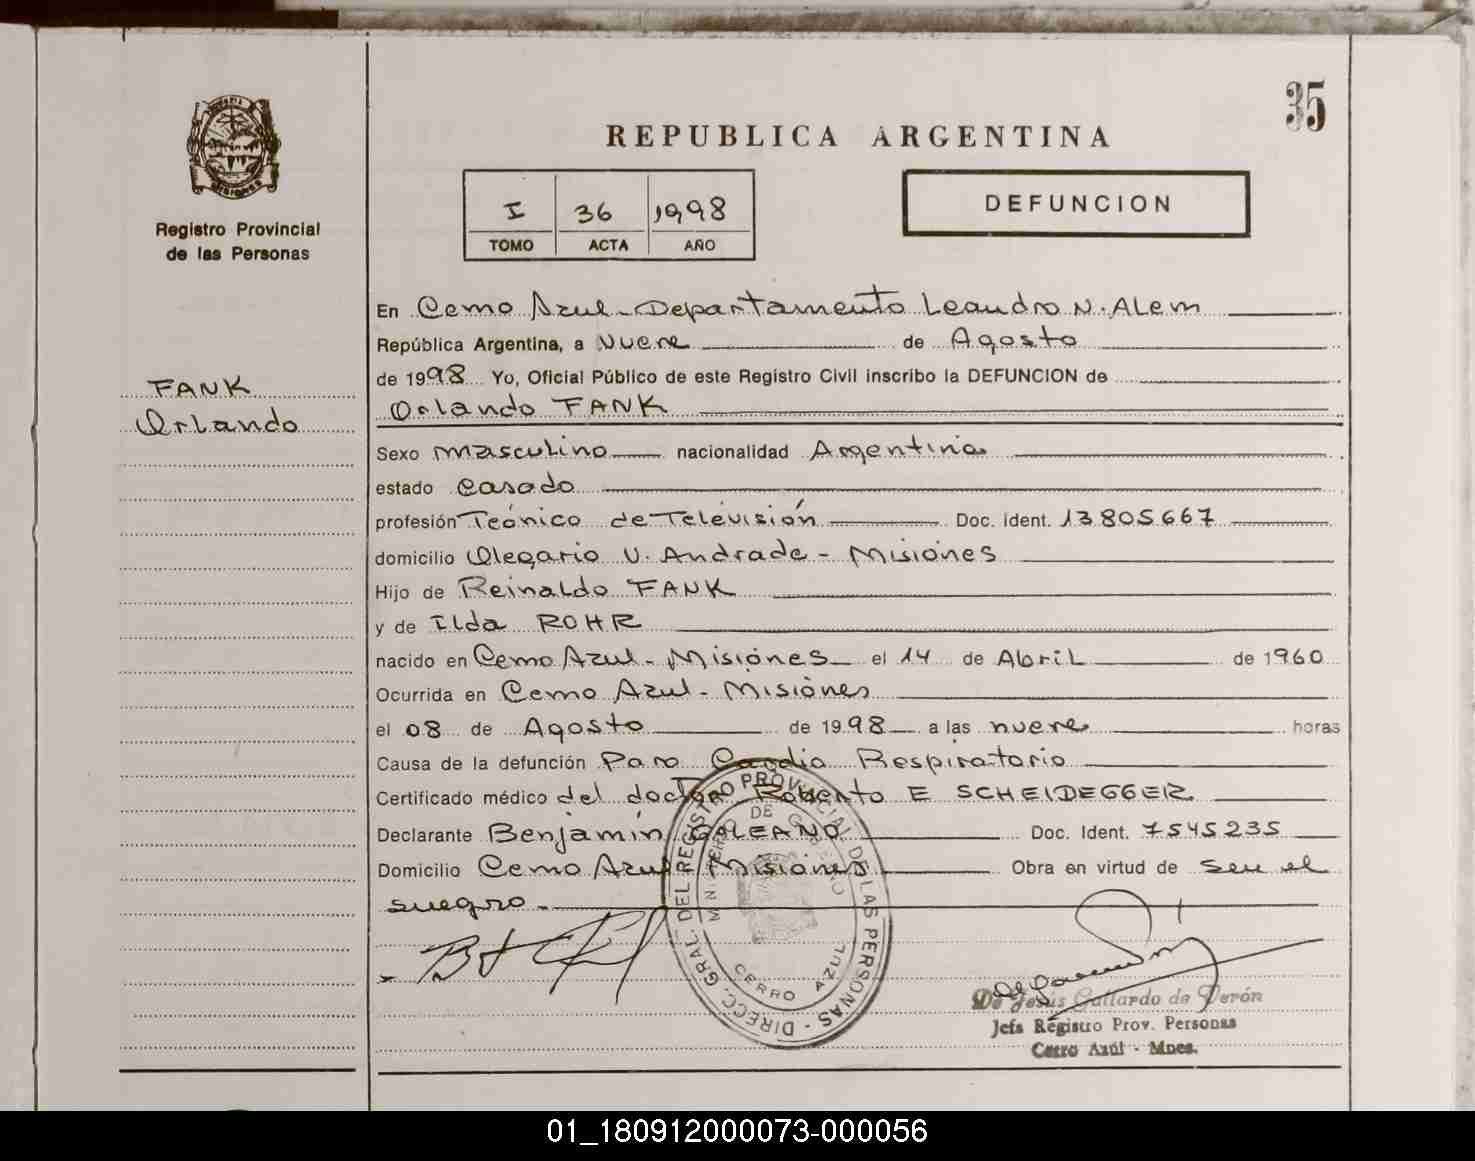 35
REPUBLICA ARGENTINA
I 36 1998
TOMO ACTA AÑO
DEFUNCION
Registro Provincial
de las Personas
FANK
Orlando
En Cerro Azul - Departamento Leandro N. ALEM
República Argentina, a Nueve de Agosto
de 1998 Yo, Oficial Público de este Registro Civil inscribo la DEFUNCION de
Orlando FANK
Sexo masculino nacionalidad Argentina
estado casado
profesión Tecnico de Televisión Doc. Ident. 13805667
domicilio Olegario V. Andrade - Misiones
Hijo de Reinaldo FANK
y de Ilda ROHR
nacido en Cerro Azul - Misiones el 14 de Abril de 1960
Ocurrida en Cerro Azul - Misiones
el 08 de Agosto de 1998 a las nueve horas
Causa de la defunción Paro Cardio Respiratorio
Certificado médico del doctor Roberto E SCHEIDEGGER
Declarante Benjamín GALEANO Doc. Ident. 7545235
Domicilio Cerro Azul Misiones Obra en virtud de ser el
suegro -
DIRECC. GRAL. DEL REGISTRO PROVINCIAL DE LAS PERSONAS -
MINISTERIO DE GOBIERNO
CERRO AZUL
De Jesús Gallardo de Verón
Jefa Registro Prov. Personas
Cerro Azúl - Mnes.
01_180912000073-000056